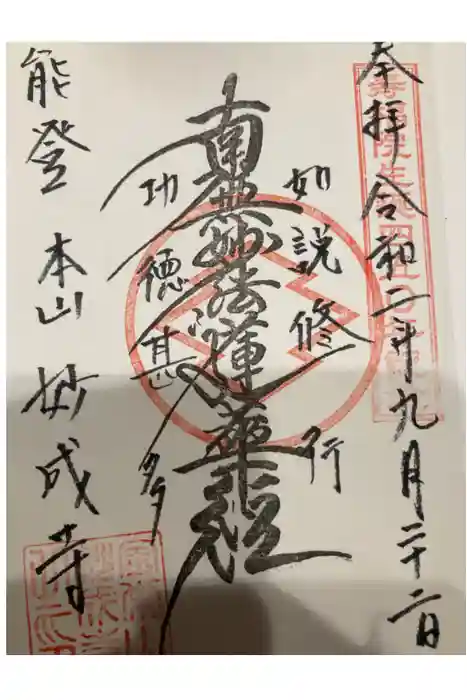 奉拝 令和二年九月二十二日
如説修行
南無妙法蓮華経
功徳甚多
能登 本山 妙成寺